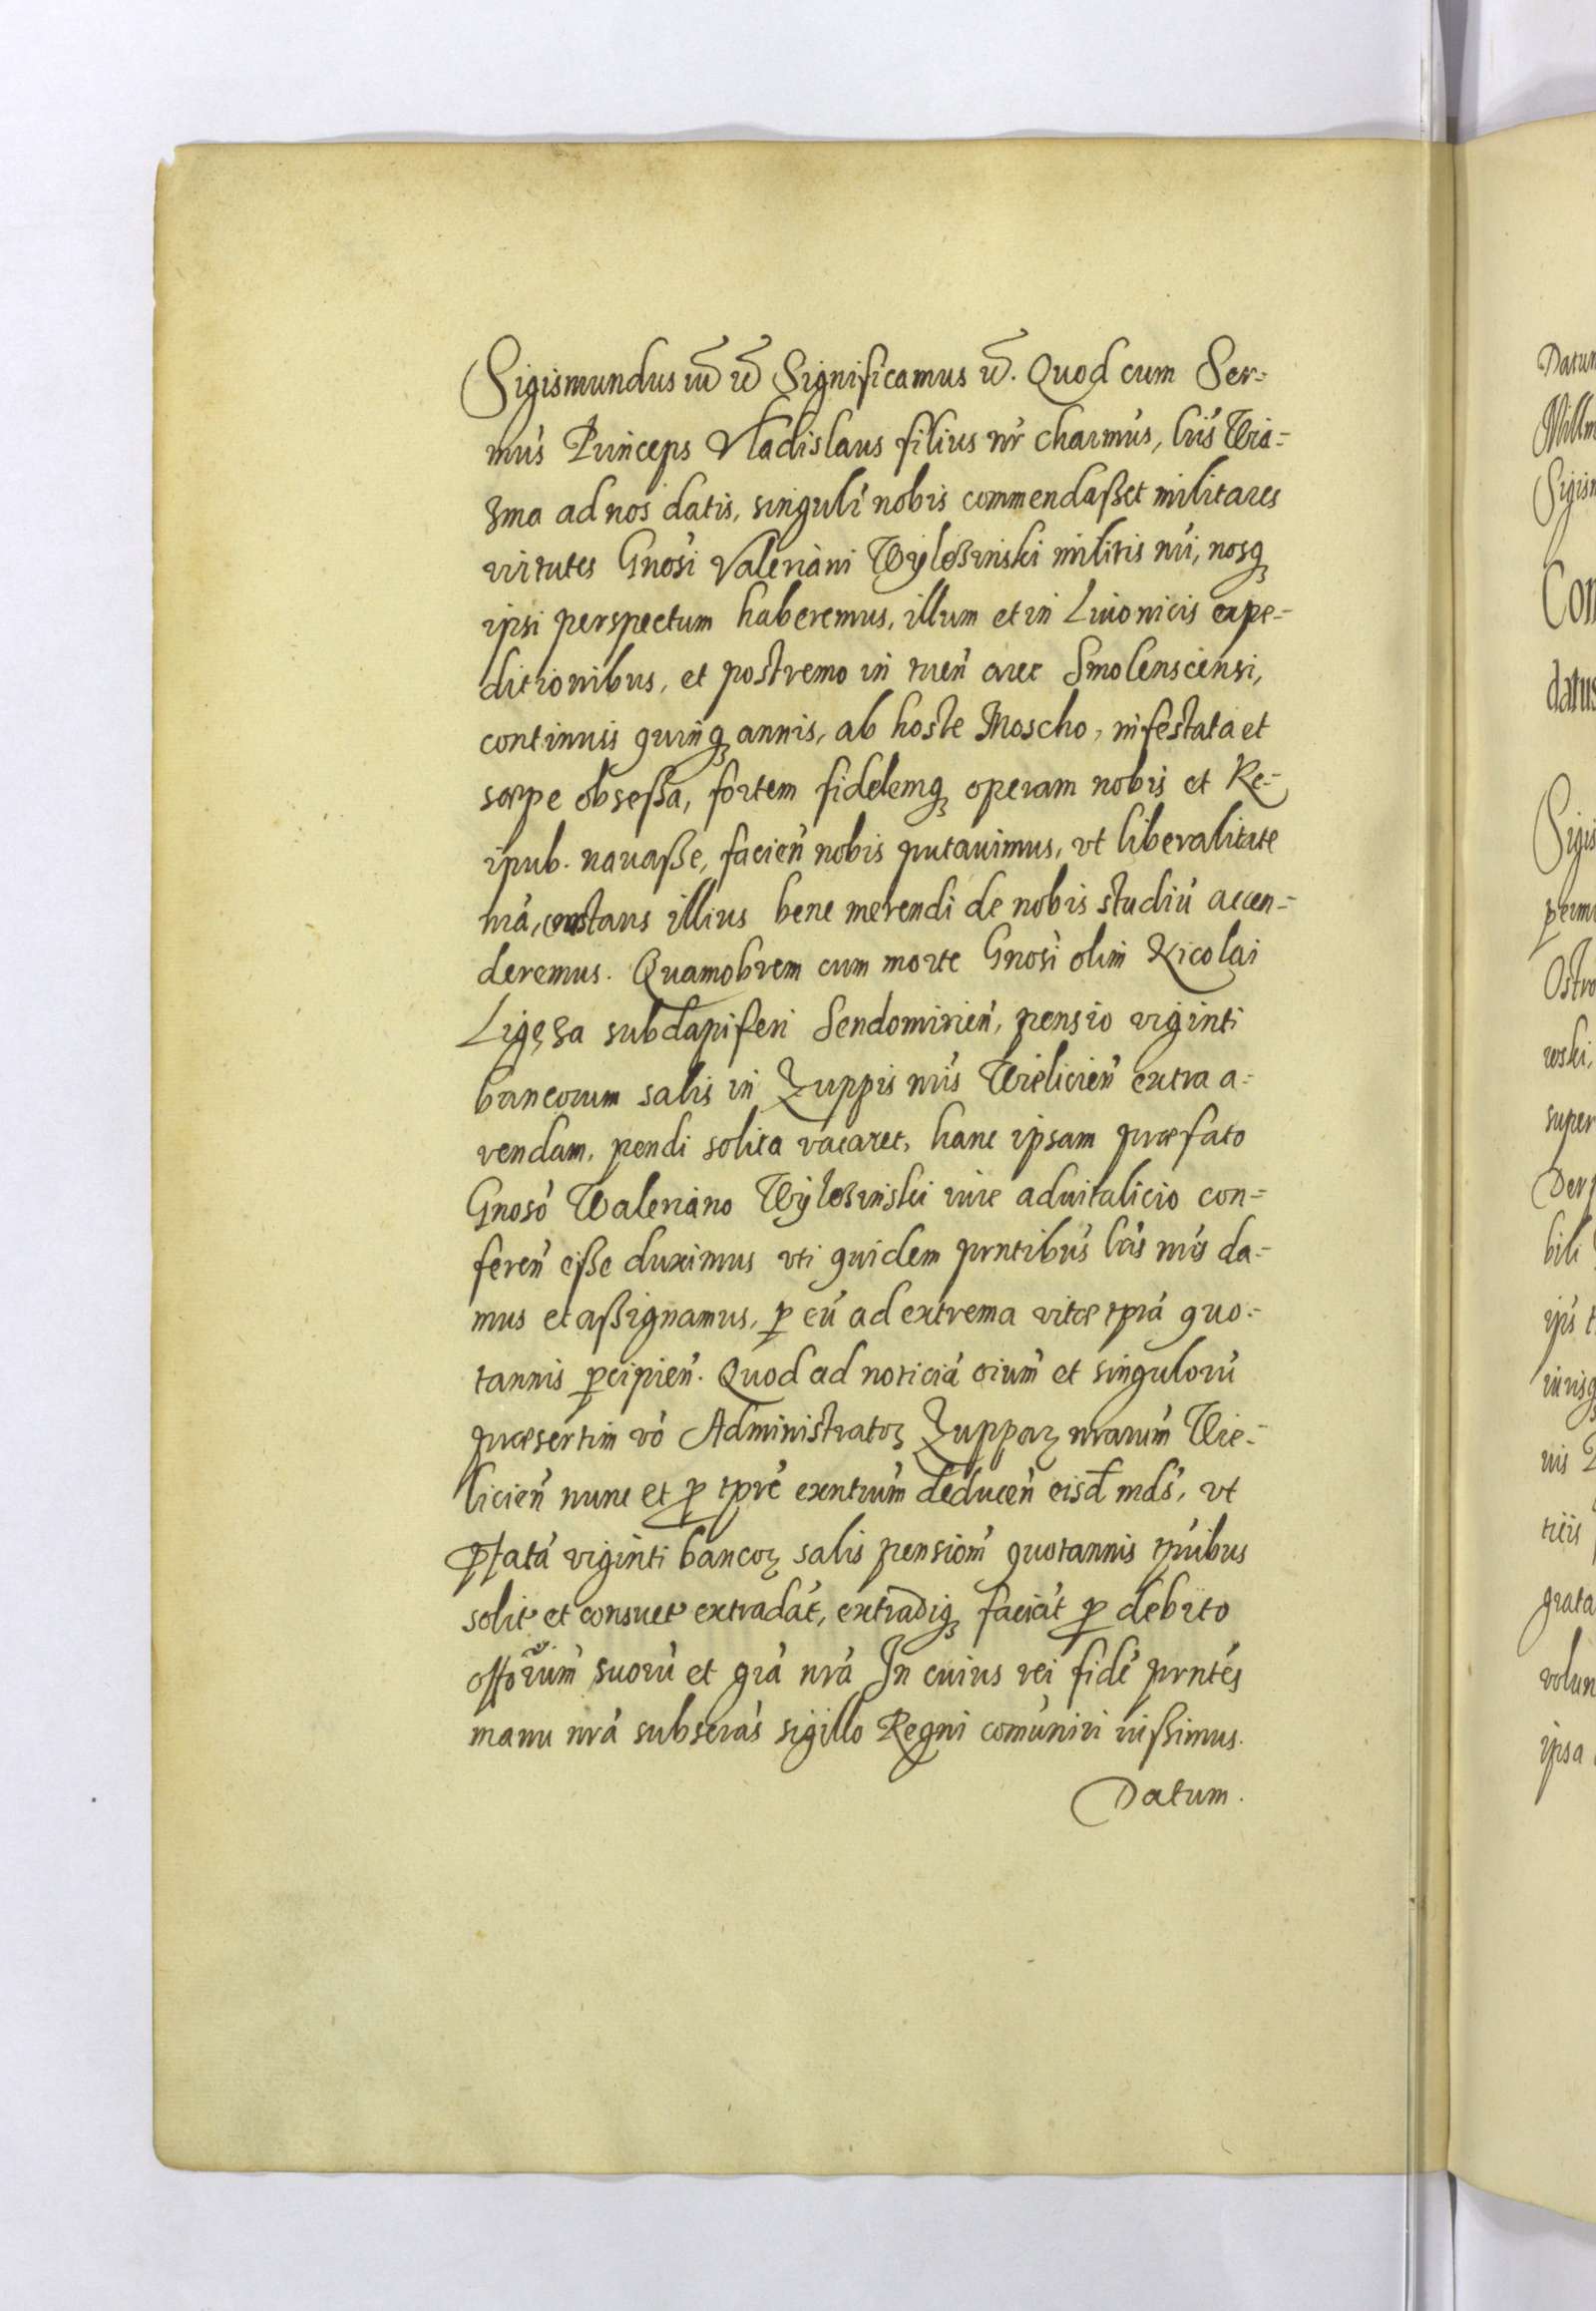 Sigismundus iu̅ u̅ Significamus u̅. Quod cum Ser-
mus Princeps Vladislaus filius nr charmus, lris Wia-
zma ad nos datis, singulr nobis commendaßet militares
virtutes Gnosi Valeriani Wylozinski militis nri, nosq
ipsi perspectum haberemus, illum et in Liuonicis expe-
ditionibus, et postremo in tuen arce Smolenscensi,
continuis quinq annis, ab hoste Moscho, infestata et
sæpe obseßa, fortem fidelemq operam nobis et Re-
ipub. nauaße, facien nobis putauimus, vt liberalitate
nra, illius bene merendi de nobis studiu accen-
deremus. Quamobrem cum morte Gnosi olim Nicolai
Ligęza subdapiferi Sendomirien, pensio viginti
bancorum salis in Zuppis nris Wielicien extra a-
rendam, pendi solita vacaret, hanc ipsam præfato
Gnoso Waleriano Wylozinski iure aduitalicio con-
feren eße duximus vti quidem prntibus lris nris da-
mus et aßignamus, p eu ad extrema vitæ tpra quo-
tannis pcipien. Quod ad noticia oium et singuloru
præsertim vo Administratoꝝ Zuppaꝝ nrarum Wie-
licien nunc et p tpre exntium deducen eisd mds, vt
pfata viginti bancoꝝ salis pensiom quotannis tpribus
solit et consuet extradat, extradiq faciat p debito
offorum suoru et gra nra In cuius rei fide prntes
manu nra subscras sigillo Regni comuniri iußimus.
Datum.
Datum
Sigis
Com
datus
Sigis
Ostro
wski,
super
bili
ipsa